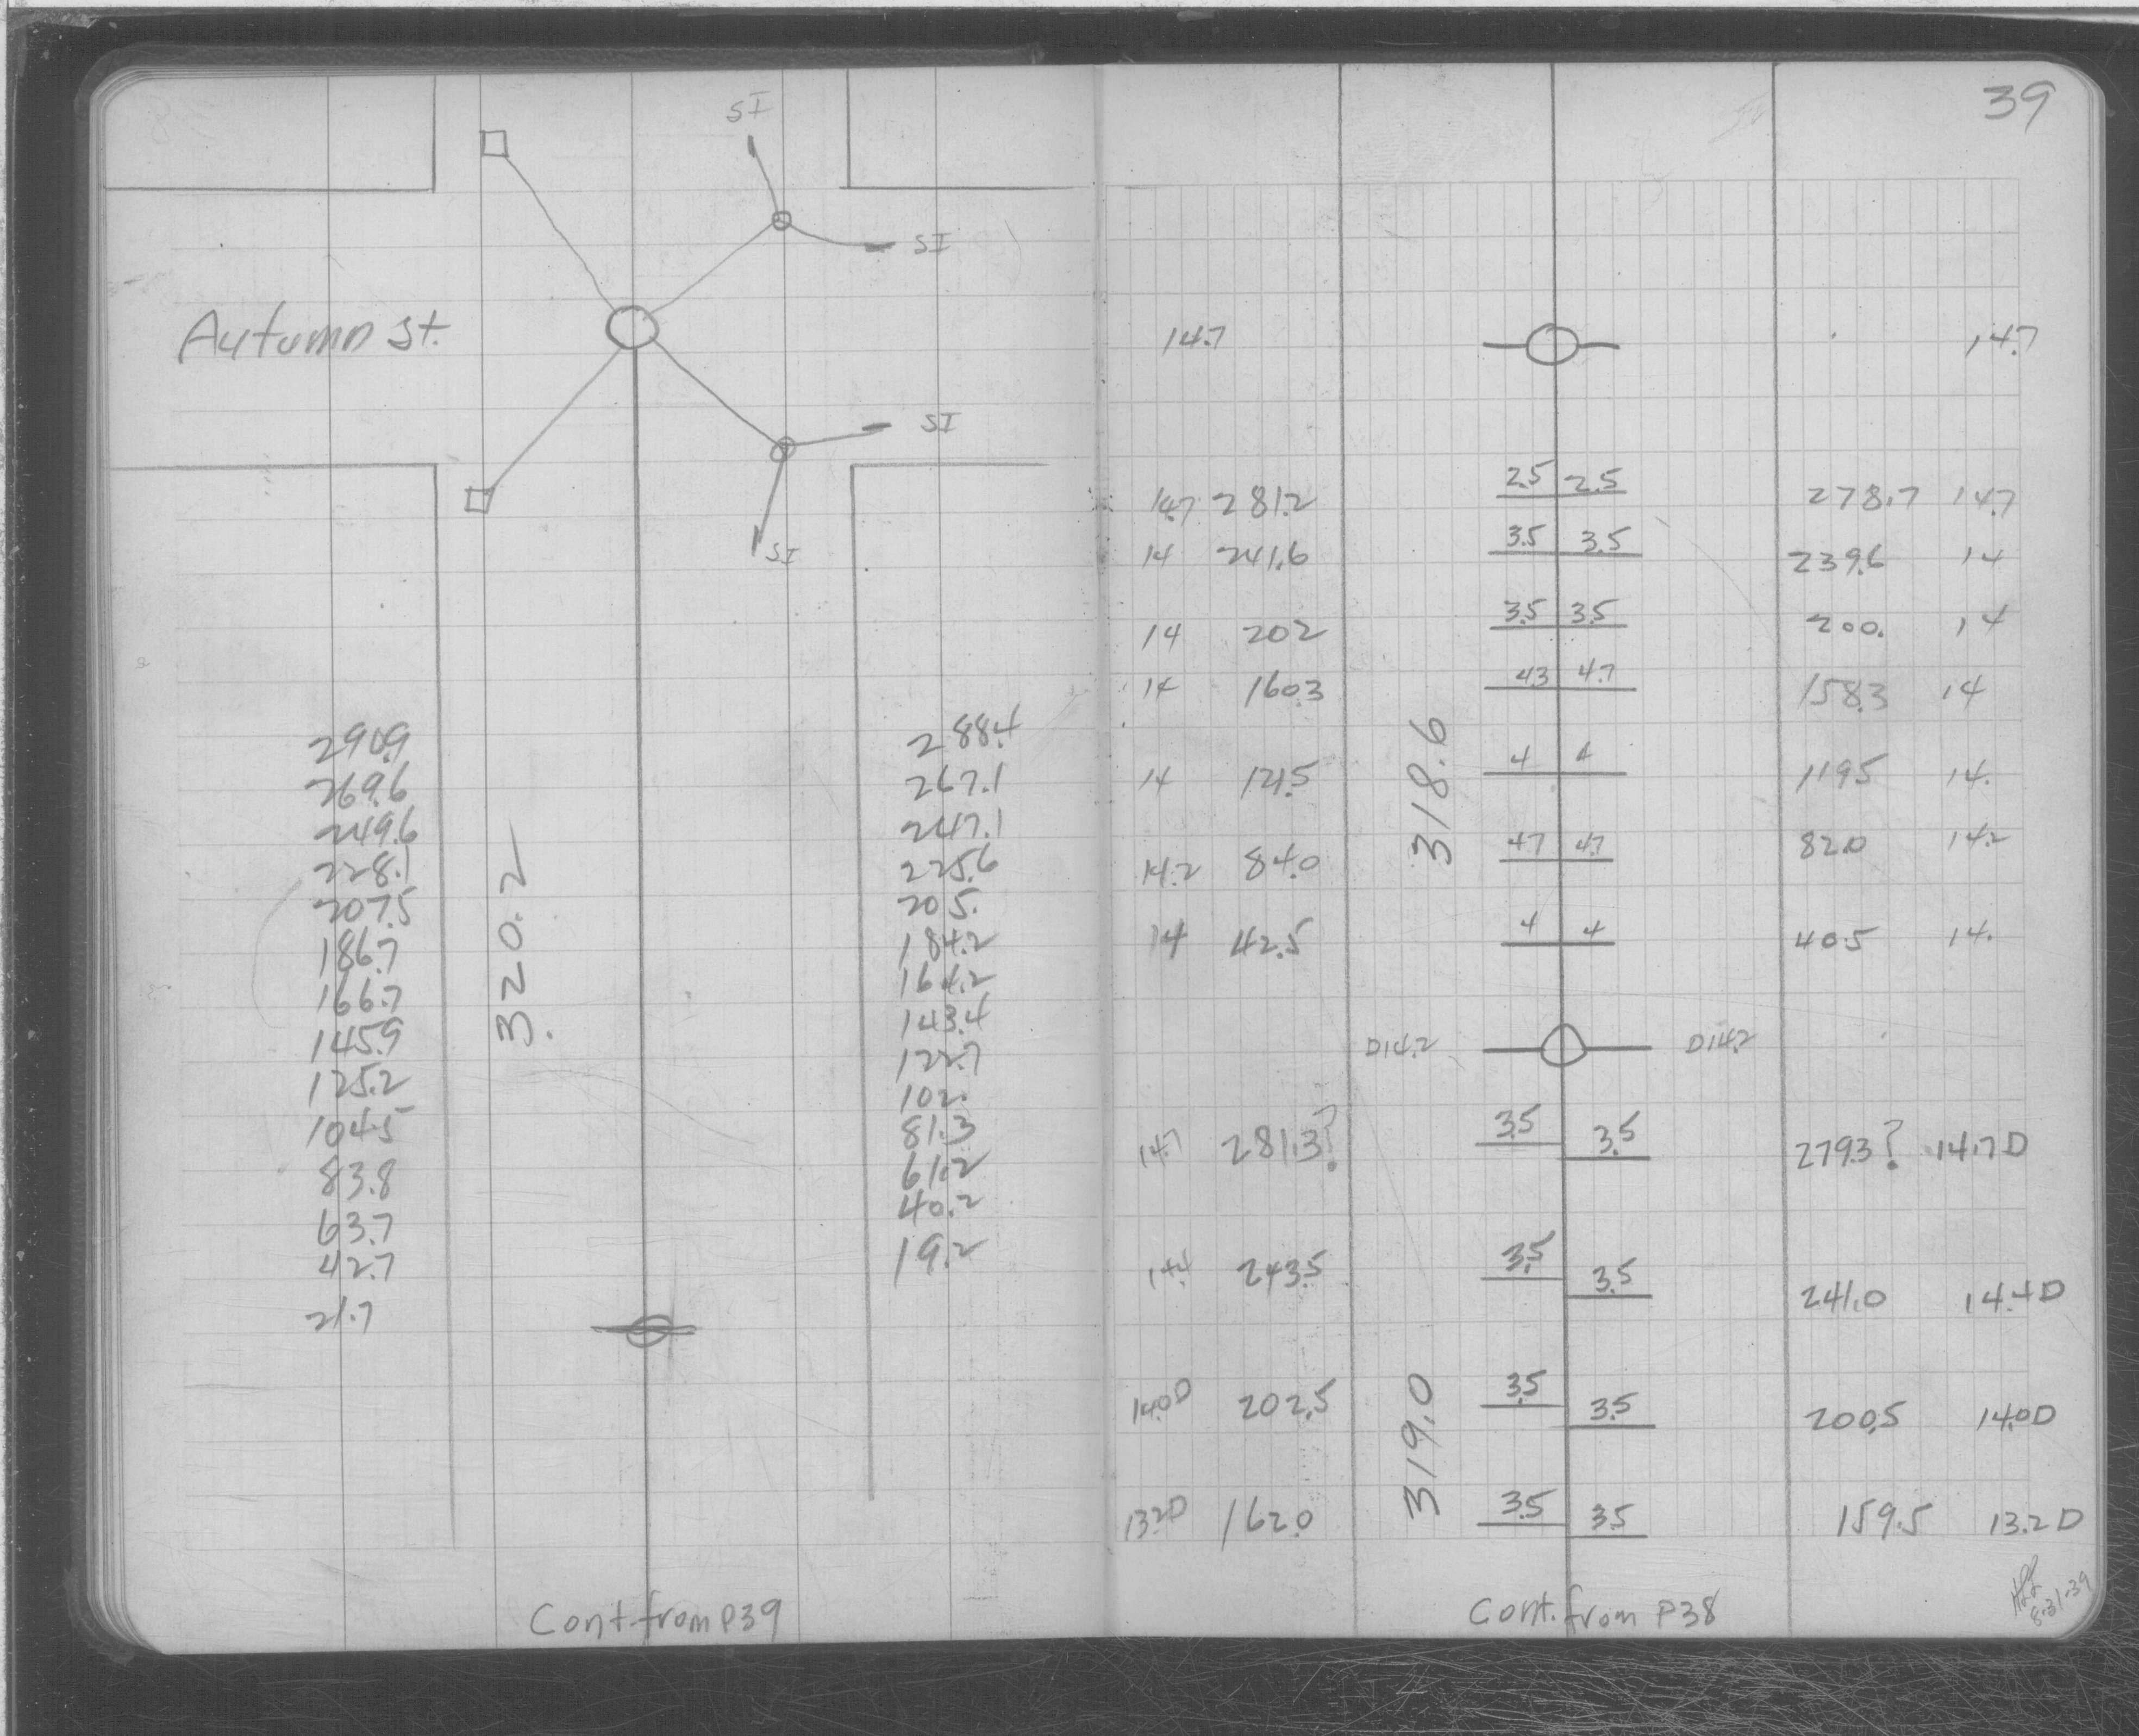 SI
SI
Autumn St.
SI
SI
290.9 288.4
269.6 267.1
249.6 247.1
228.1 225.6
207.5 205.
186.7 184.2
166.7 164.2
145.9 143.4
125.2 122.7
104.5 102.
83.8 81.3
63.7 61.2
42.7 40.2
21.7 19.2
320.2
Cont. from P39
39
14.7 14.7
14.7 281.2 2.5 2.5 278.7 14.7
14 241.6 3.5 3.5 239.6 14
14 202 3.5 3.5 200. 14
14 160.3 4.3 4.7 158.3 14
14 121.5 4 4 119.5 14.
318.6
14.2 84.0 4.7 4.7 82.0 14.2
14 42.5 4 4 40.5 14.
D14.2 D14.2
14.7 281.3? 3.5 3.5 279.3? 14.7D
14.4 243.5 3.5 3.5 241.0 14.4D
14.0D 202.5 3.5 3.5 200.5 14.0D
319.0
13.2D 162.0 3.5 3.5 159.5 13.2D
Cont. from P38
8-31-39